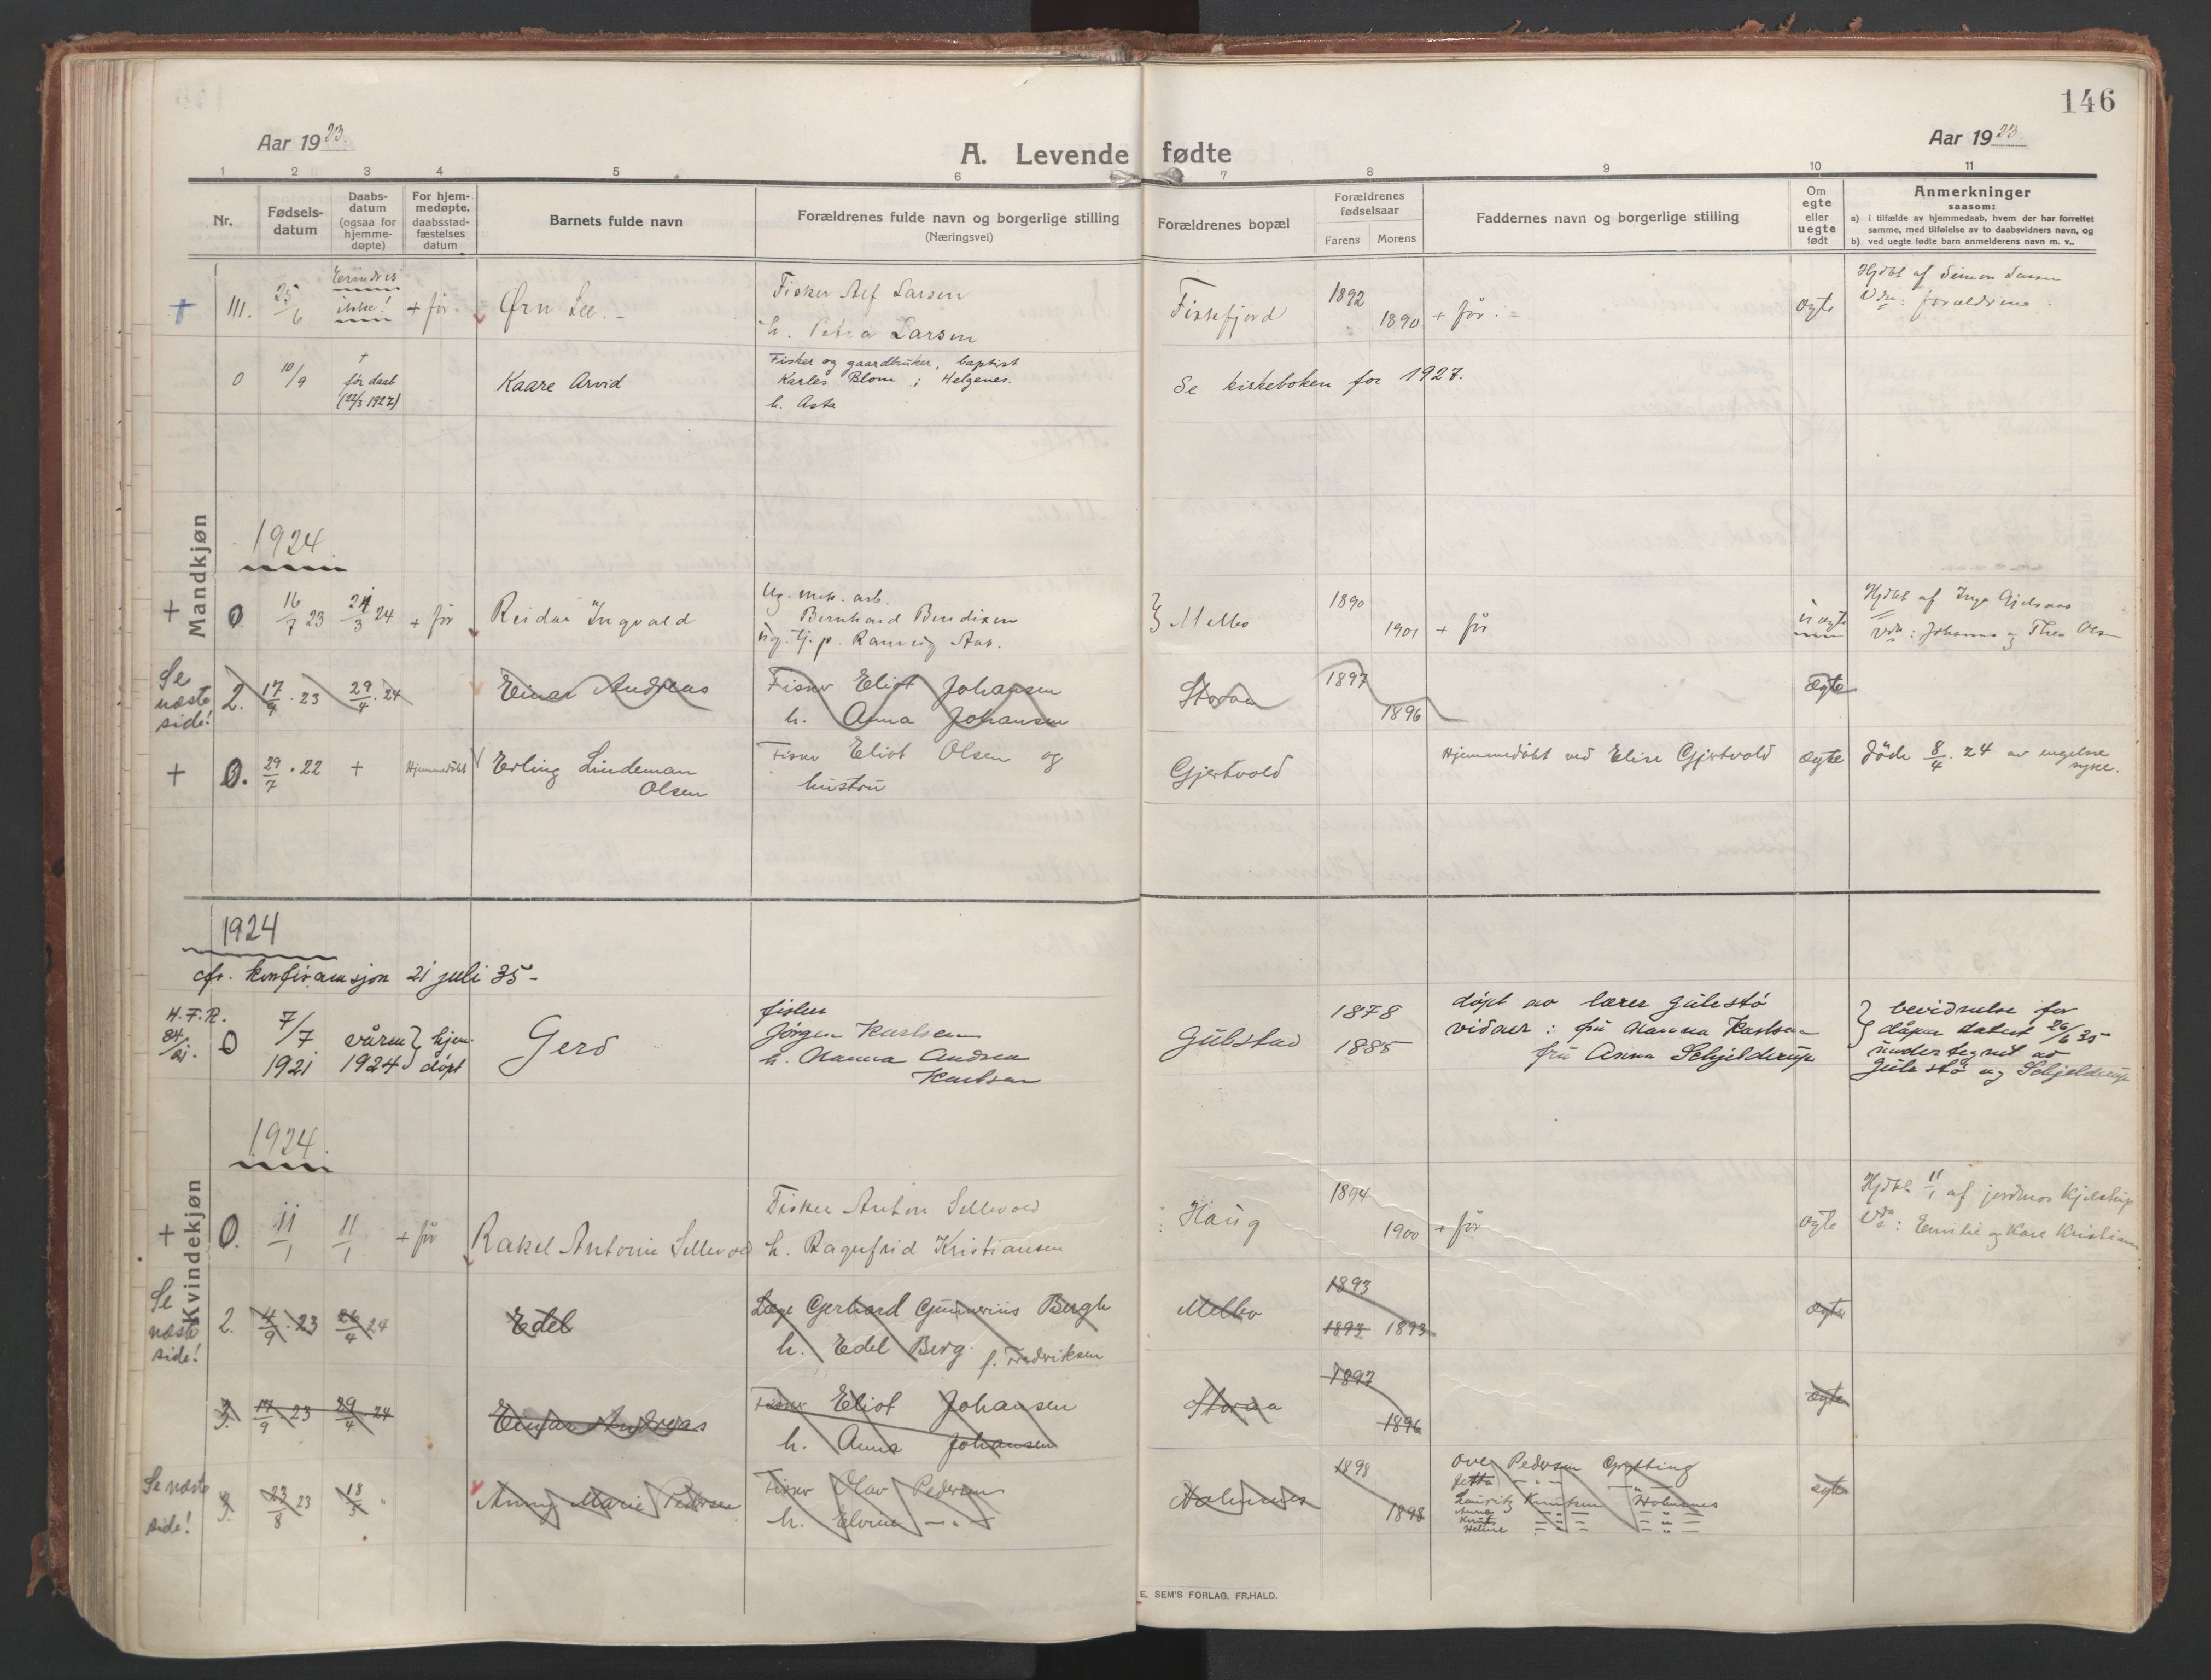 146
Aar 1923.
A. Levende fødte
Aar 1923.
1 2 3 4 5 6 7 8 9 10 11
Nr.
Fødsels-
datum
Daabs-
datum
(ogsaa for
hjemme-
døpte)
For hjem-
medøpte,
daabsstad-
fæstelses
datum
Barnets fulde navn
Forældrenes fulde navn og borgerlige stilling
(Næringsvei)
Forældrenes bopæl
Forældrenes
fødselsaar
Farens Morens
Faddernes navn og borgerlige stilling
Om
egte
eller
uegte
født
Anmerkninger
saasom:
a) i tilfælde av hjemmedaab, hvem der har forrettet
samme, med tilføielse av to daabsvidners navn, og
b) ved uegte fødte barn anmelderens navn m. v..
Mandkjøn
+ 111. 25/6 Erindres
ikke! + før. Ørn Lee. Fisker Alf Larsen
h. Petra Larsen
Fiskefjord 1892 1890 + før. ægte
Hjdbt af Simon Larsen
Vdn: forældrene.
0 10/9 +
før daab
(22/3 1927)
Kaare Arvid
Fisker og gaardbruker, baptist
Karles Blom; Helgenes.
h. Asta
Se kirkeboken for 1927.
1924
+ 0. 16/7 23 24/3 24 + før Reidar Ingvald
Ug. mek. arb.
Bernhard Bendixen
ug. tj. p. Rannveig Aas.
Melbo 1890 1901 + før uægte
Hjdbt af Inga
Vdn: Johanna og Thea Olsen
Se
næste
side!
2. 17/9 . 23 29/4 . 24 Einar Andreas
Fisker Eliot Johansen
h. Anna Johansen
Storaa 1897 1896 ægte
+ 0. 29/7 . 22 + Hjemmedøbt Erling Lindeman
Olsen
Fisker Eliot Olsen og
hustru
Gjertvold
Hjemmedøbt ved Elise Gjertvold ægte Døde 8/4 . 24 av engelske
syke.
1924
cfr. konfirmasjon 21 juli 35 -
Kvindekjøn
H. F. R.
84/21.
0 7/7
1921
våren
1924
hjem.
døpt
Gerd
fisker
Jørgen Karlsen
h. Hanna Andrea
Karlsen
Gulstad 1878
1885
døpt av lærer Gulestø
vidner: fru Hanna Karlsen
fru Anna Schjelderup
bevidnelse for
dåpen datert 26/6 35
undertegnet av
Gulestø og Schjelderup
1924.
+ 0. 11/1 11/1 + før Rakel Antonie Sellevold
Fisker Anton Sellevold
h. Ragnfrid Kristiansen
Haug 1894 1900 + før ægte
Hjdbt 11/1 af jordmor Kjelstrup
Vdn: Emilie og Kare Kristiansen
Se
næste
side!
2. 4/9 . 23 26/4 24 Edel
Læge Gerhard Gunnerius Bergh
h. Edel Berg f. Fredriksen
Melbo 1893
1893 1893 ægte
3. 17/9 . 23 29/4 . 24 Einar Andreas
Fisker Eliot Johansen
h. Anna Johansen
Storaa 1897
1896 ægte
Se næste
side!
3. 23/8 23 18/5 " Anny Marie Pedersen
Fisker Olav Pedersen
h. Elvine - " -
Holmsnes 1898
1898
Ove Pedersen Grytting
Jetta - " - - " -
Lauritz Knutsen Holmsnes
Anna - " - - " -
Knut - " - - " -
Heline - " - - " -
ægte
E. SEM'S FORLAG, FR.HALD.